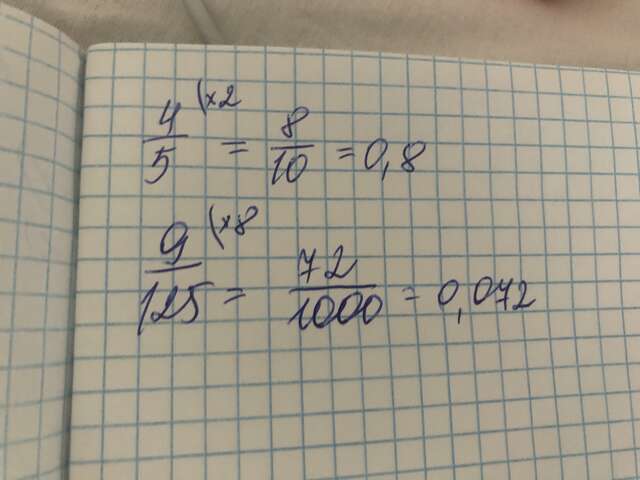 4/5 (×2 = 8/10 = 0,8
9/125 (×8 = 72/1000 = 0,072